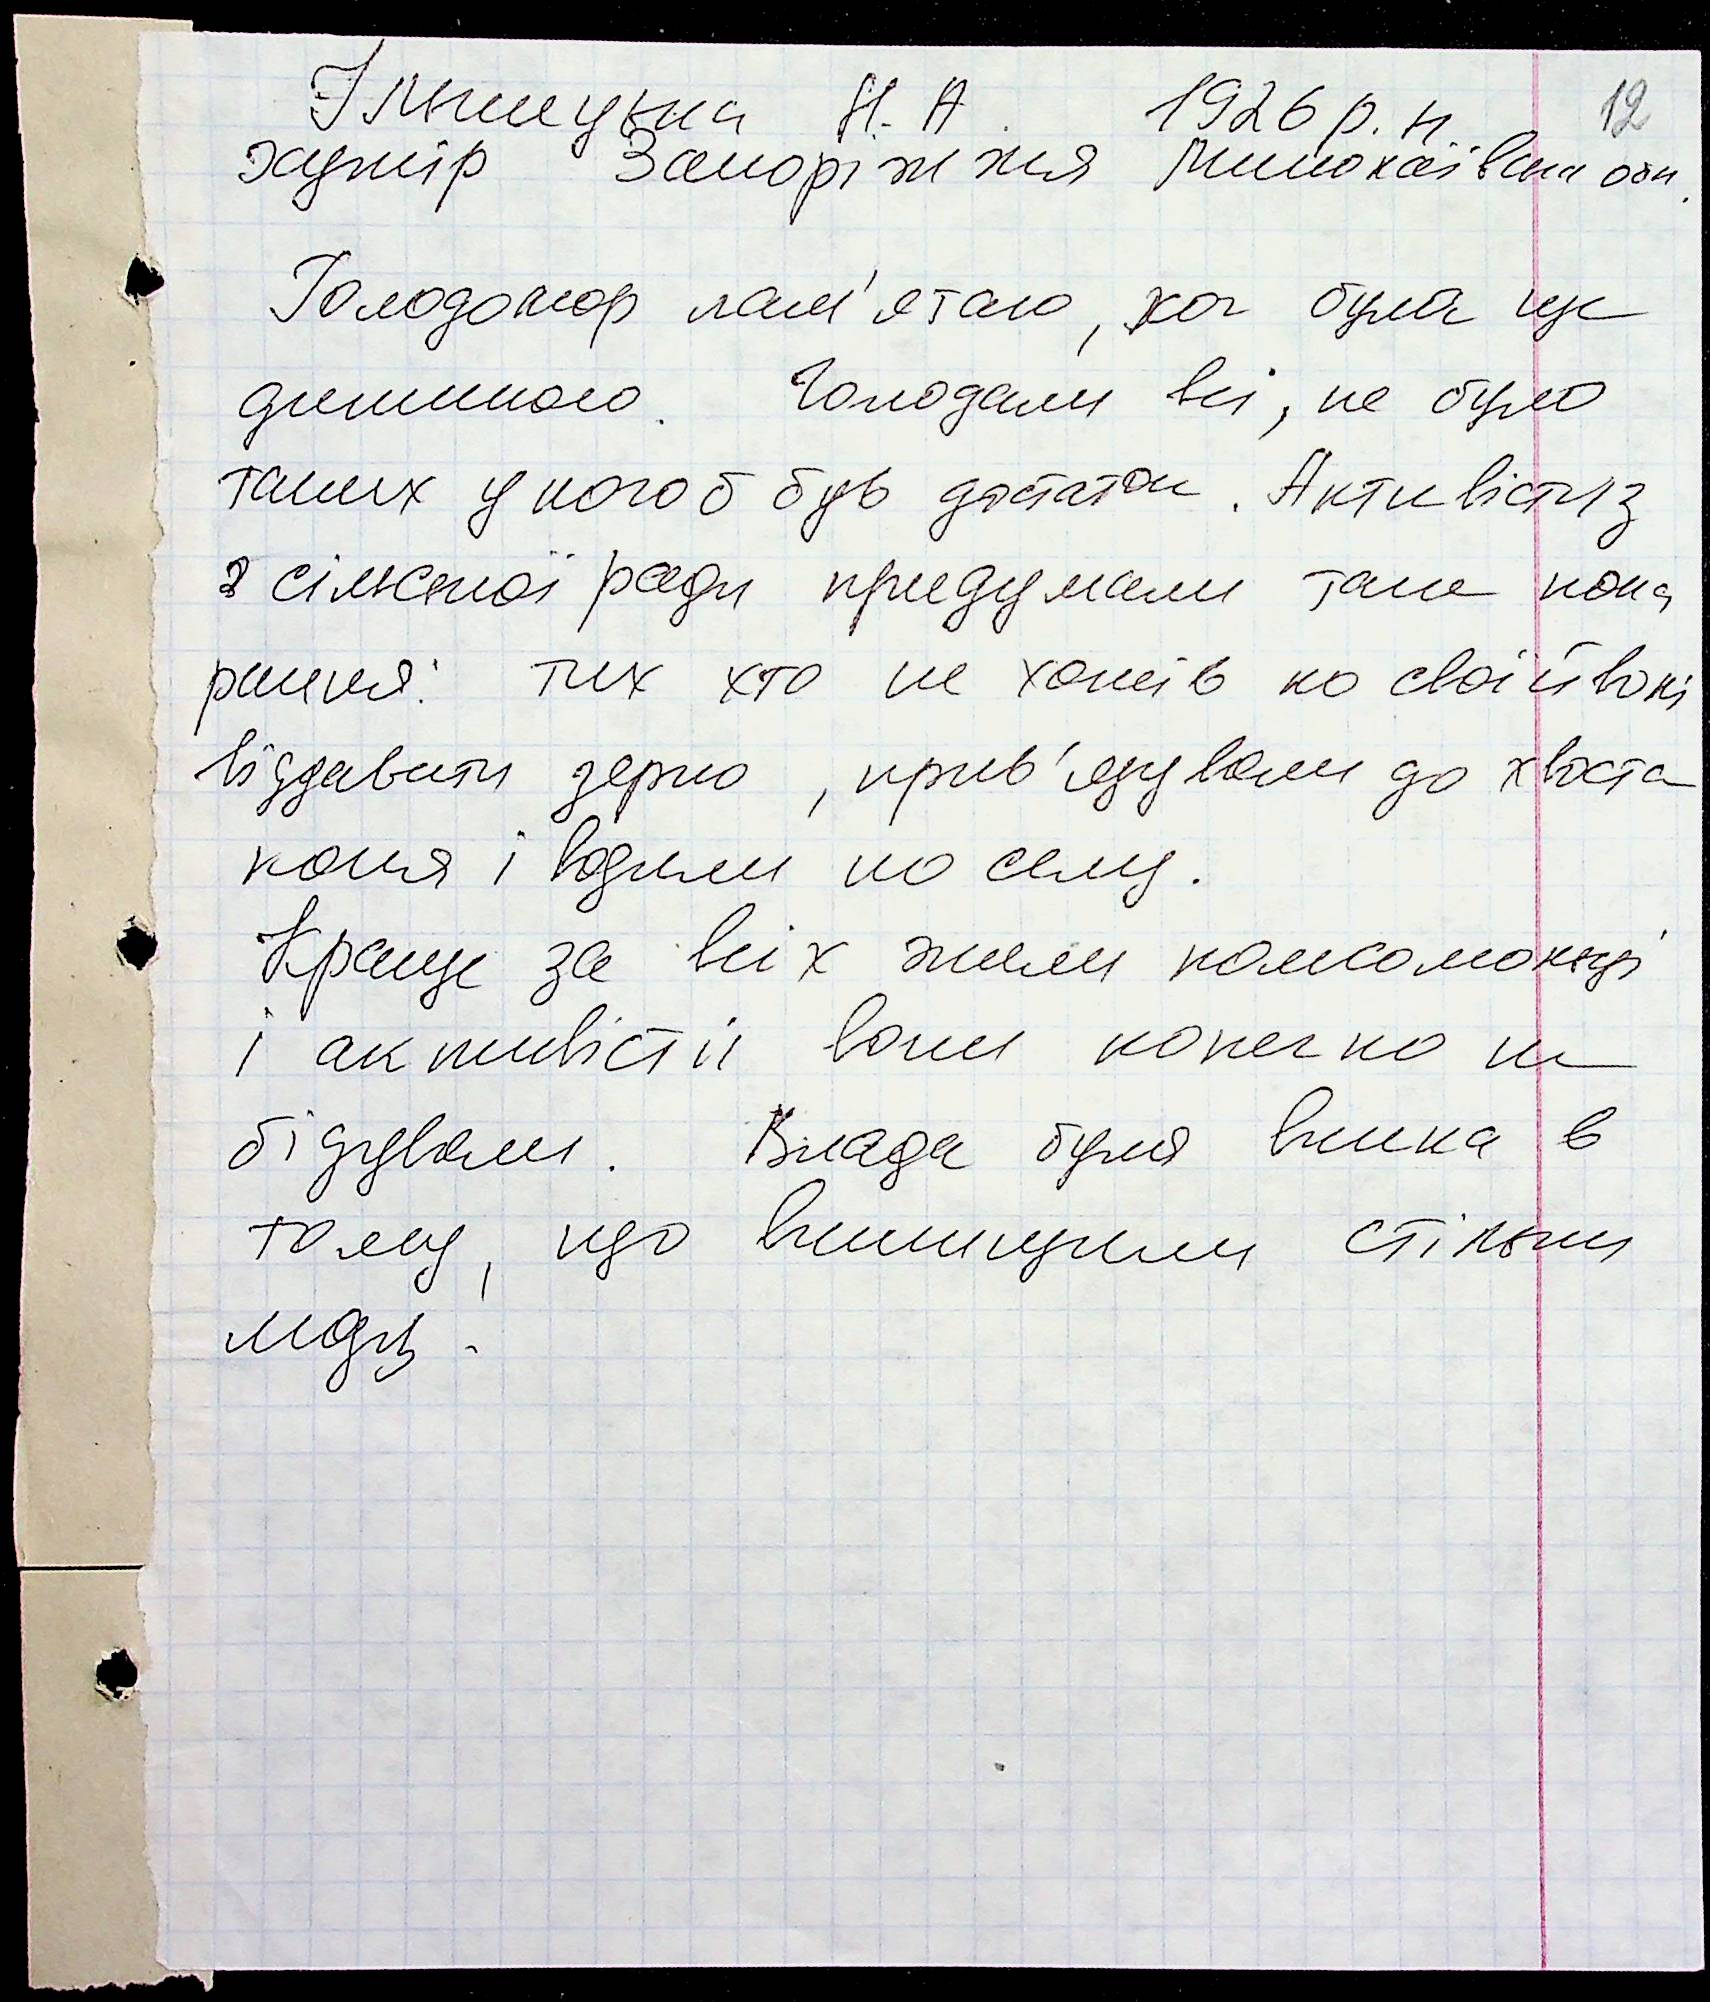 Н. А. 1926 р. н 12
хутір Запоріжжя Миколаївська обл.
Голодомор пам'ятаю, хоч була ще
дитиною. Голодали всі, не було
таких у кого б був достаток. Активісти з
з сільської ради придумали таке пока
рання: тих хто не хотів по своїй волі
віддавати зерно, прив'язували до хвоста
коня і водили по селу.
Краще за всіх жили комсомольці
і активісти вони конечно не
бідували. Влада була винна в
тому, що винищили стільки
людей.